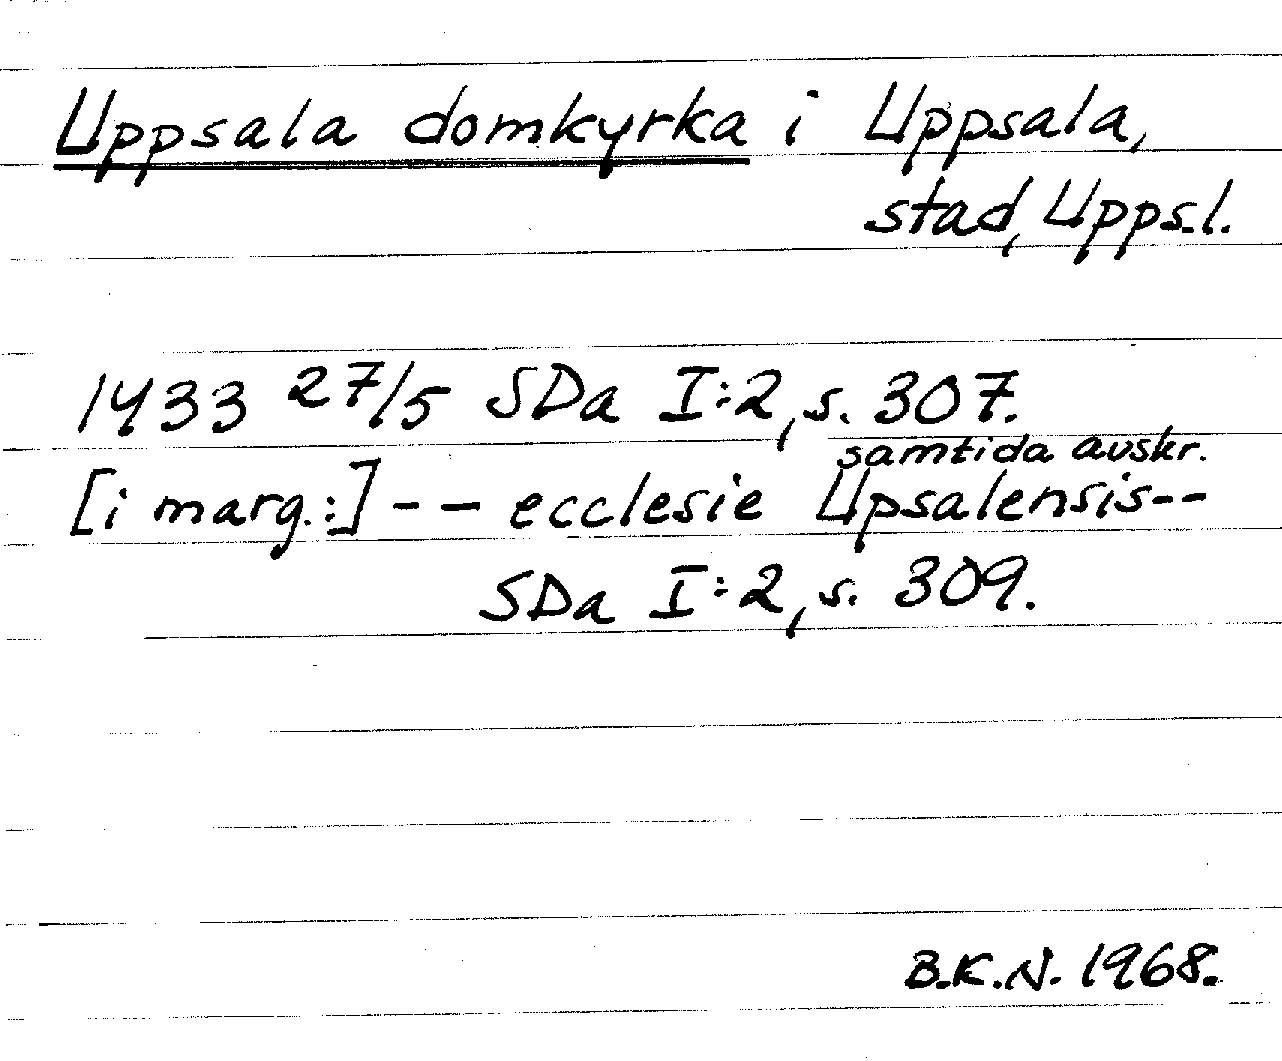 Uppsala domkyrka i Uppsala,
stad, Upps.l.
1433 27/5 SDa I:2, s. 307.
samtida avskr.
[i marg.:] -- ecclesie Upsalensis--
SDa I:2, s. 309.
B.K.N. 1968.